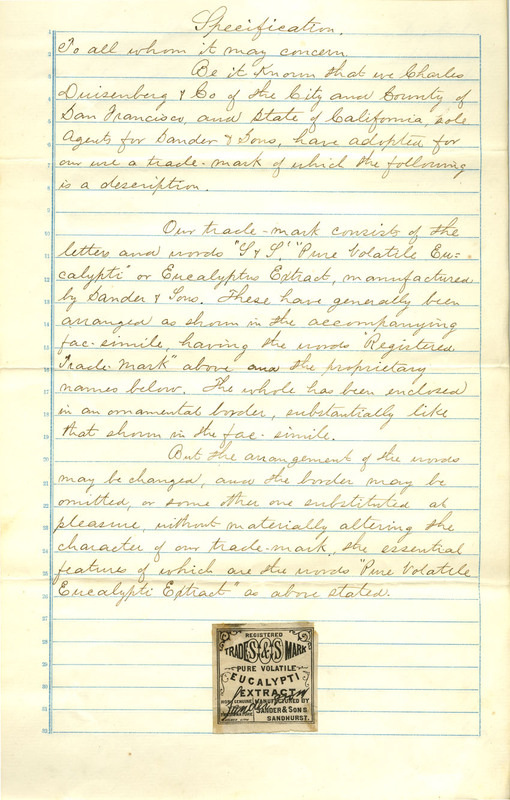 Specification.
To all whom it may concern.
Be it Known that we Charles
Duisenberg & Co of the City and County of
San Francisco, and State of California, sole
Agents for Sander & Sons, have adopted for
our use a trade-mark of which the following
is a description.
Our trade-mark consists of the
letters and words "S & S," "Pure Volatile Eu=
calypti" or Eucalyptus Extract, manufactured
by Sander & Sons. These have generally been
arranged as shown in the accompanying
fac-simile, having the words "Registered
Trade Mark" above and the proprietary
names below. The whole has been enclosed
in an ornamental border, substantially like
that shown in the fac-simile.
But the arrangement of the words
may be changed, and the border may be
omitted, or some other one substituted at
pleasure, without materially altering the
character of our trade-mark, the essential
features of which are the words "Pure Volatile
Eucalypti Extract" as above stated.
REGISTERED
TRADE S&S MARK
PURE VOLATILE
EUCALYPTI
EXTRACT
MANUFACTURED BY
SANDER & SONS
SANDHURST.